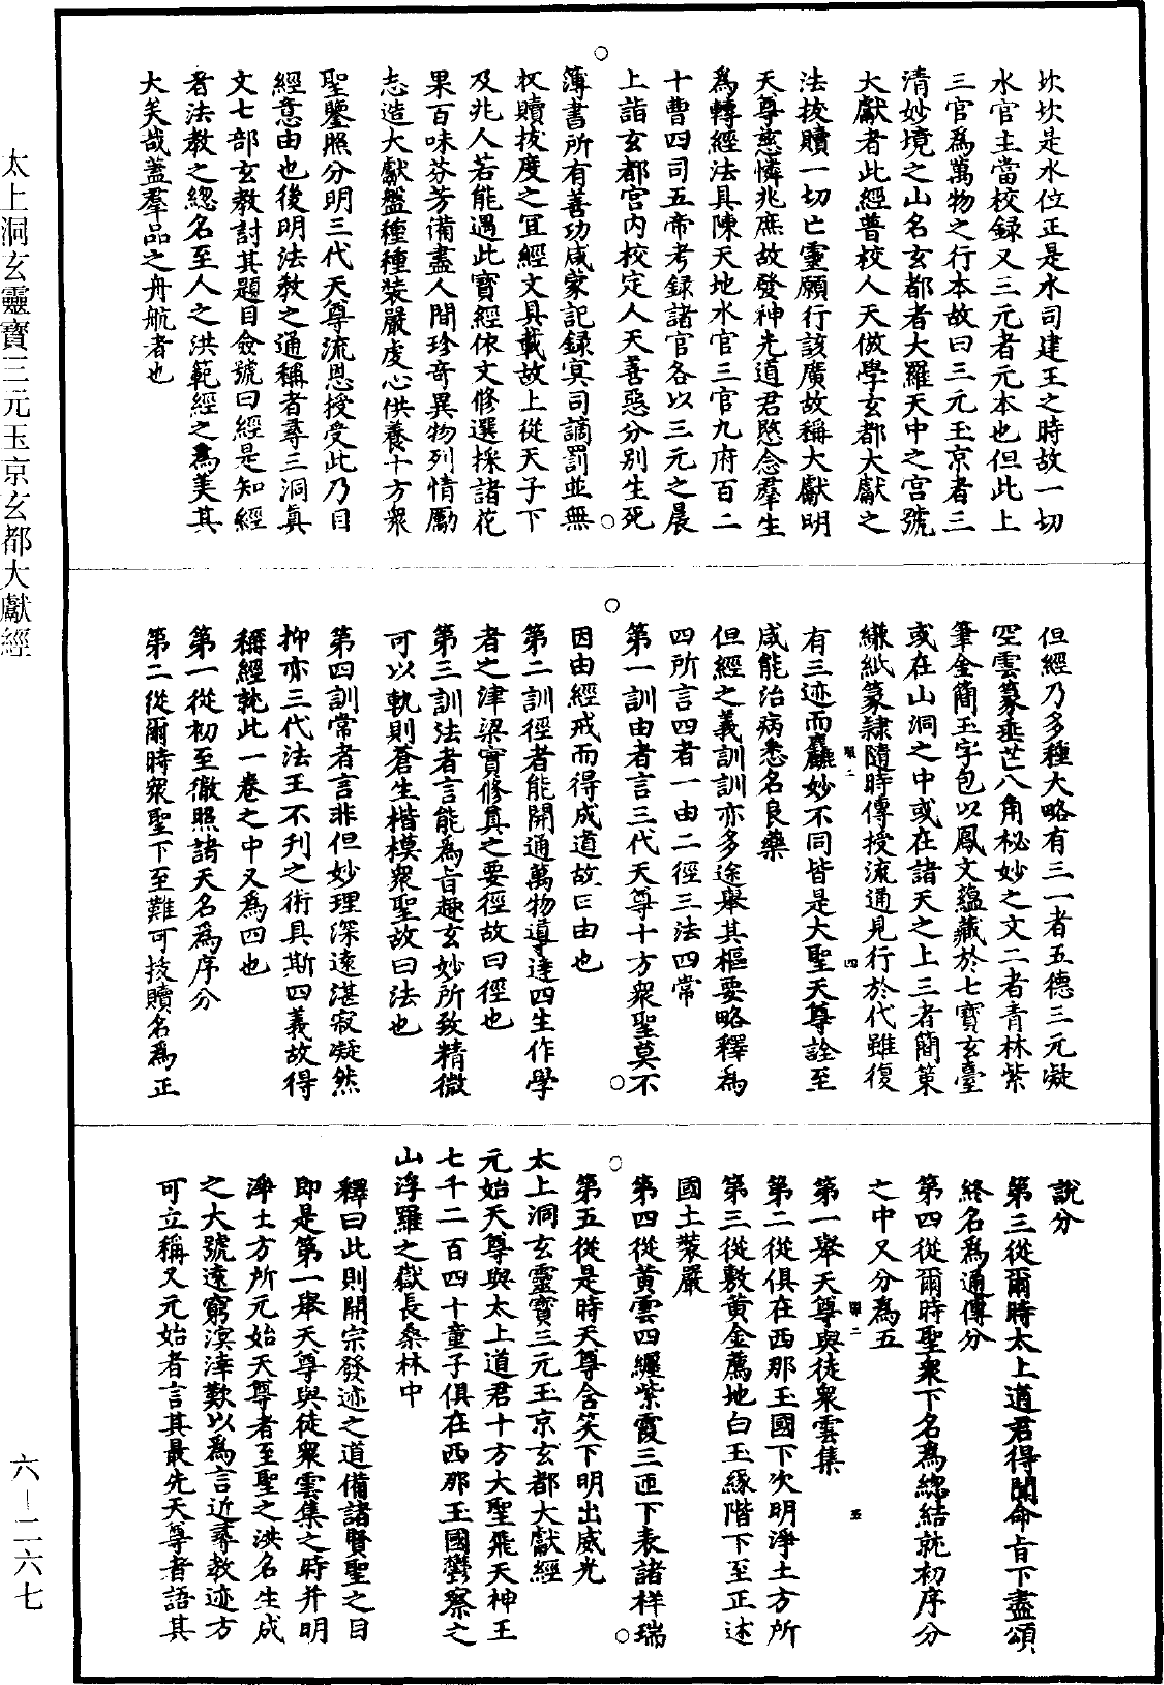 坎坎是水位正是水司建王之時故一切
水官主當校録又三元者元本也但此上
三官為萬物之行本故曰三元玉京者三
清妙境之山名玄都者大羅天中之宮號
大獻者此經普校人天倣學玄都大獻之
法拔贖一切亡靈願行該廣故稱大獻明
天尊慈憐兆庶故發神光道君愍念羣生
為轉經法具陳天地水官三官九府百二
十曹四司五帝考録諸官各以三元之晨
上詣玄都宮內校定人天善惡分別生死
薄書所有善功咸蒙記録冥司謫罰並無
杈贖拔度之宜經文具載故上從天子下
及兆人若能遇此寶經依文修選採諸花
果百味芬芳備盡人間珍奇異物列情勵
志造大獻盤種種裝嚴虔心供養十方衆
聖鑒照分明三代天尊流恩授受此乃目
經意由也後明法教之通稱者尋三洞真
文七部玄教討其題目僉號曰經是知經
者法教之總名至人之洪範經之為美其
大矣哉蓋羣品之舟航者也
但經乃多種大略有三一者五德三元凝
空雲篆垂芒八角秘妙之文二者青林紫
筆金簡玉字包以鳳文蘊藏於七寶玄臺
或在山洞之中或在諸天之上三者簡策
縑紙篆隸隨時傳授流通見行於代雖復
有三迹而麤妙不同皆是大聖天尊詮至
咸能治病悉名良藥
但經之義訓訓亦多途舉其樞要略釋為
四所言四者一由二徑三法四常
第一訓由者言三代天尊十方衆聖莫不
因由經戒而得成道故曰由也
第二訓徑者能開通萬物導達四生作學
者之津梁實修真之要徑故曰徑也
第三訓法者言能為旨趣玄妙所致精微
可以軌則蒼生楷模衆聖故曰法也
第四訓常者言非但妙理深遠湛寂凝然
抑亦三代法王不刊之術具斯四義故得
稱經就此一卷之中又為四也
第一從初至徹照諸天名為序分
第二從爾時衆聖下至難可拔贖名為正
說分
第三從爾時太上道君得聞命旨下盡頌
終名為通傳分
第四從爾時聖衆下名為總結就初序分
之中又分為五
第一舉天尊與徒衆雲集
第二從俱在西那玉國下次明淨土方所
第三從敷黃金薦地白玉緣階下至正述
國土裝嚴
第四從黃雲四纏紫霞三匝下表諸祥瑞
第五從是時天尊含笑下明出威光
太上洞玄靈寶三元玉京玄都大獻經
元始天尊與太上道君十方大聖飛天神王
七千二百四十童子俱在西那玉國鬱察之
山浮羅之嶽長桑林中
釋曰此則開宗發迹之道備諸賢聖之目
即是第一舉天尊與徒衆雲集之時并明
淨土方所元始天尊者至聖之洪名生成
之大號遠窮溟涬歎以為言近尋教迹方
可立稱又元始者言其最先天尊者語其
太上洞玄靈寶三元玉京玄都大獻經
六－二六七